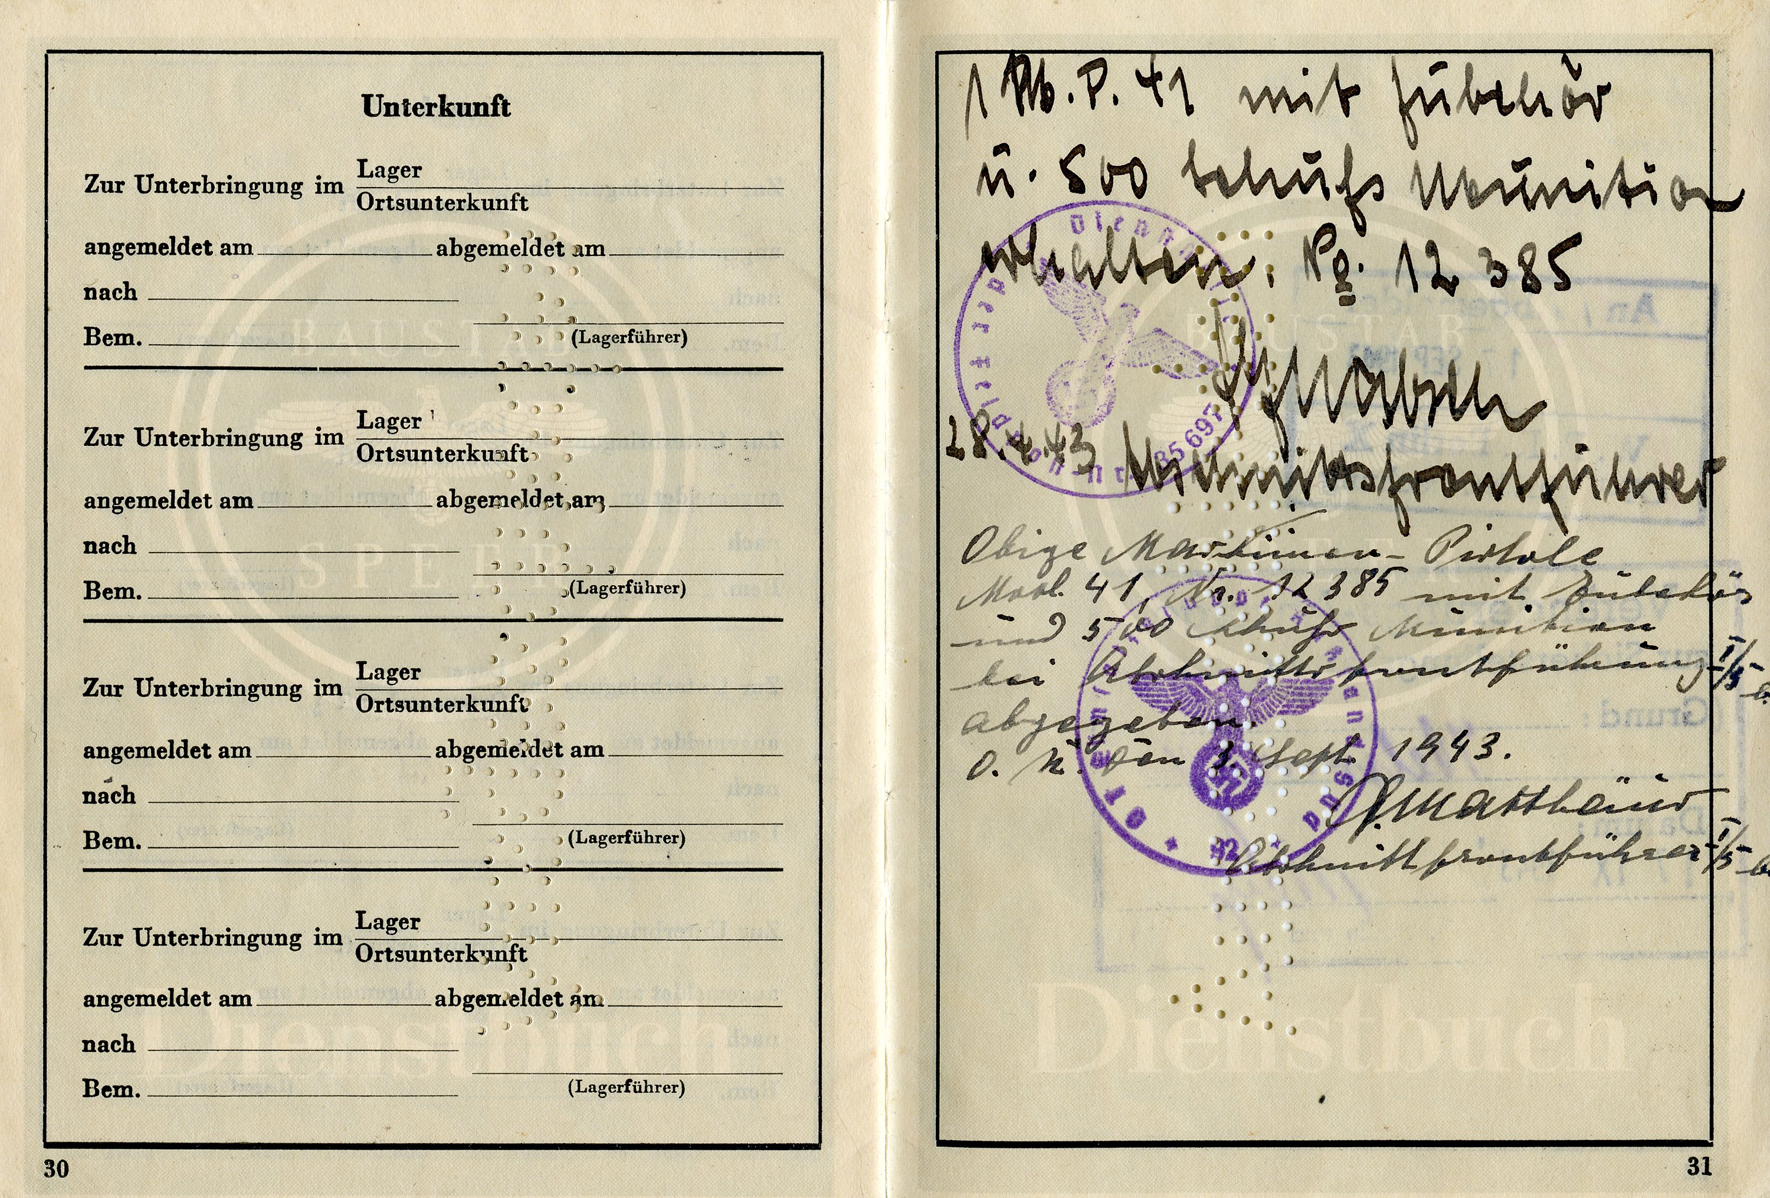 Unterkunft
Zur Unterbringung im Lager
Ortsunterkunft
angemeldet am abgemeldet am
nach
Bem. (Lagerführer)
Zur Unterbringung im Lager
Ortsunterkunft
angemeldet am abgemeldet am
nach
Bem. (Lagerführer)
Zur Unterbringung im Lager
Ortsunterkunft
angemeldet am abgemeldet am
nach
Bem. (Lagerführer)
Zur Unterbringung im Lager
Ortsunterkunft
angemeldet am abgemeldet am
nach
Bem. (Lagerführer)
BAUSTAB
SPEER
Dienstbuch
30
1 M.P. 41 mit Zubehör
u. 500 Schuss Munition
erhalten. No. 12385
28.4.43
Abschnittsfrontführer
35697
Obige Maschinen-Pistole
Mod. 41, Nr. 12385 mit Zubehör
und 500 Schuss Munition
bei Abschnittsfrontführung I/5
abgegeben.
O. U. den 1. Sept. 1943.
Matthäus
Abschnittsfrontführer I/5
BAUSTAB
Dienstbuch
31